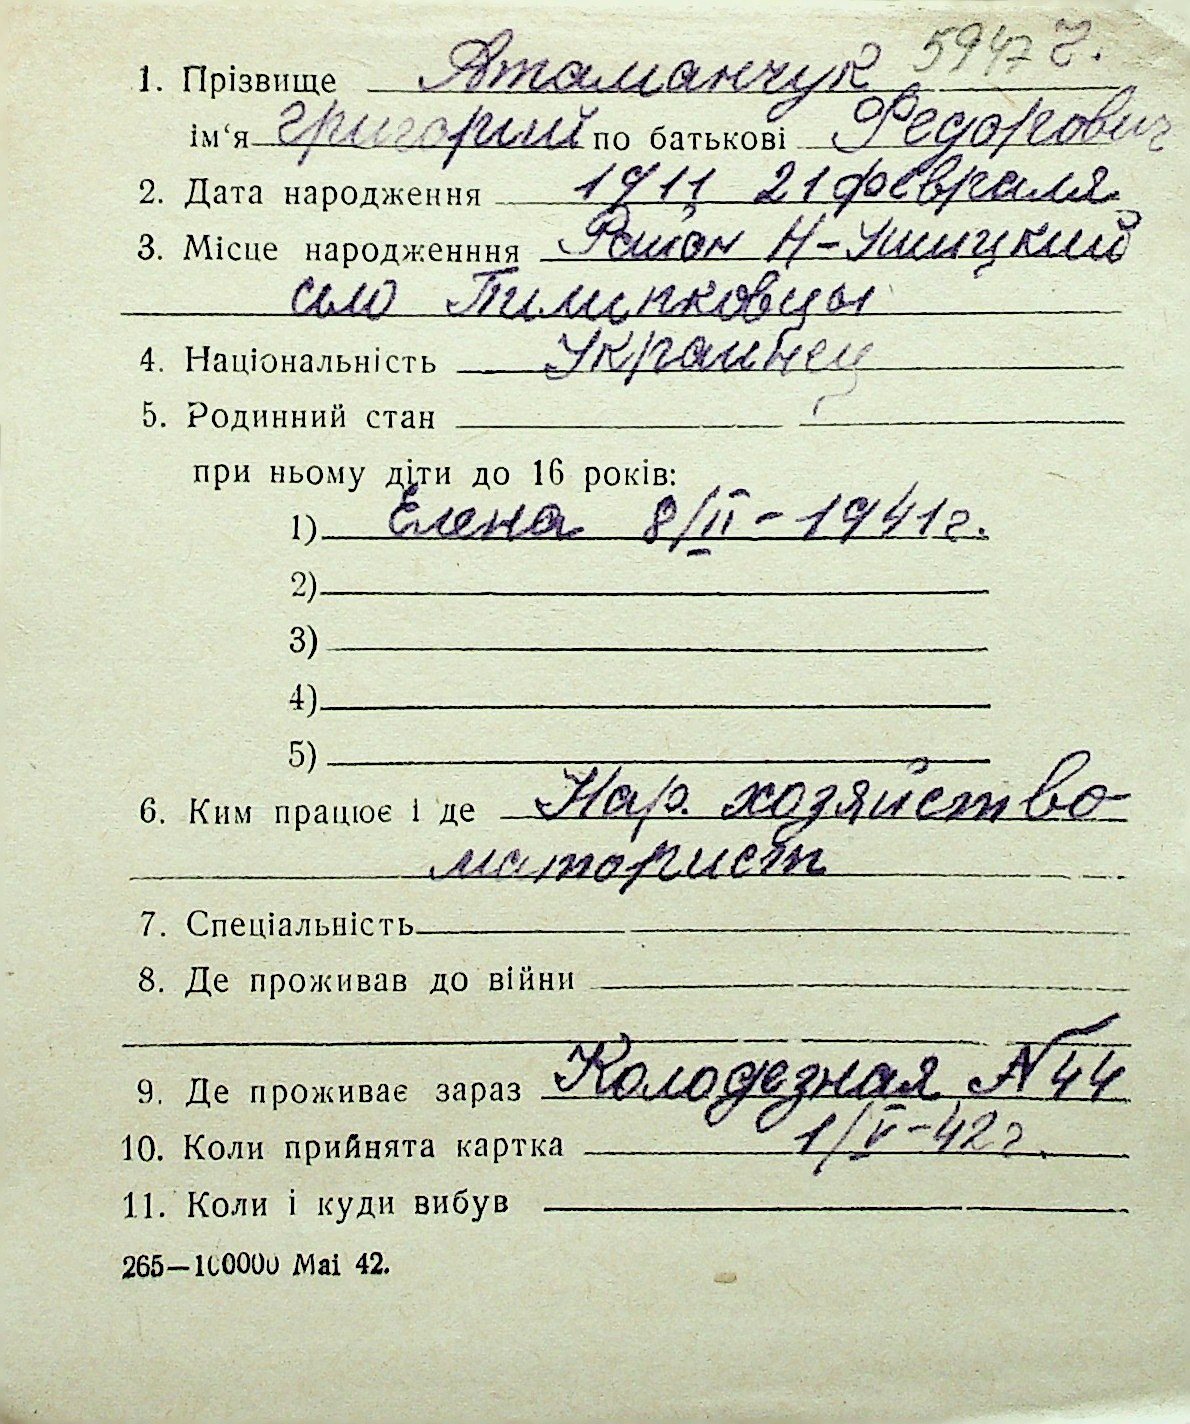 5947 г.
1. Прізвище Атаманчук
ім‘я Григорий по батькові Федорович
2. Дата народження 1911 21 февраля
3. Місце народженння Район Н-Ушицкий
село Пилипковцы
4. Національність Украинец
5. Родинний стан
при ньому діти до 16 років:
1) Елена 8/II - 1941 г.
2)
3)
4)
5)
6. Ким працює і де Нар. хозяйство
моторист
7. Спеціальність
8. Де проживав до війни
9. Де проживає зараз Колодезная N 44
10. Коли прийнята картка 1/V-42 г.
11. Коли і куди вибув
265—100000 Mai 42.